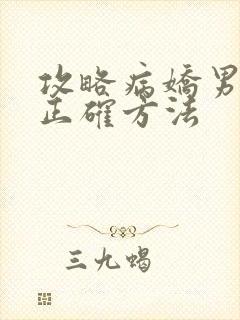 攻略病嬌男
正確方法
三九蝎